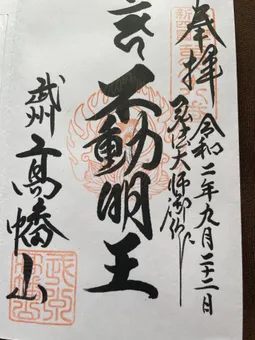 奉拝
令和二年九月二十二日
弘法大師御作
不動明王
武州
高幡山